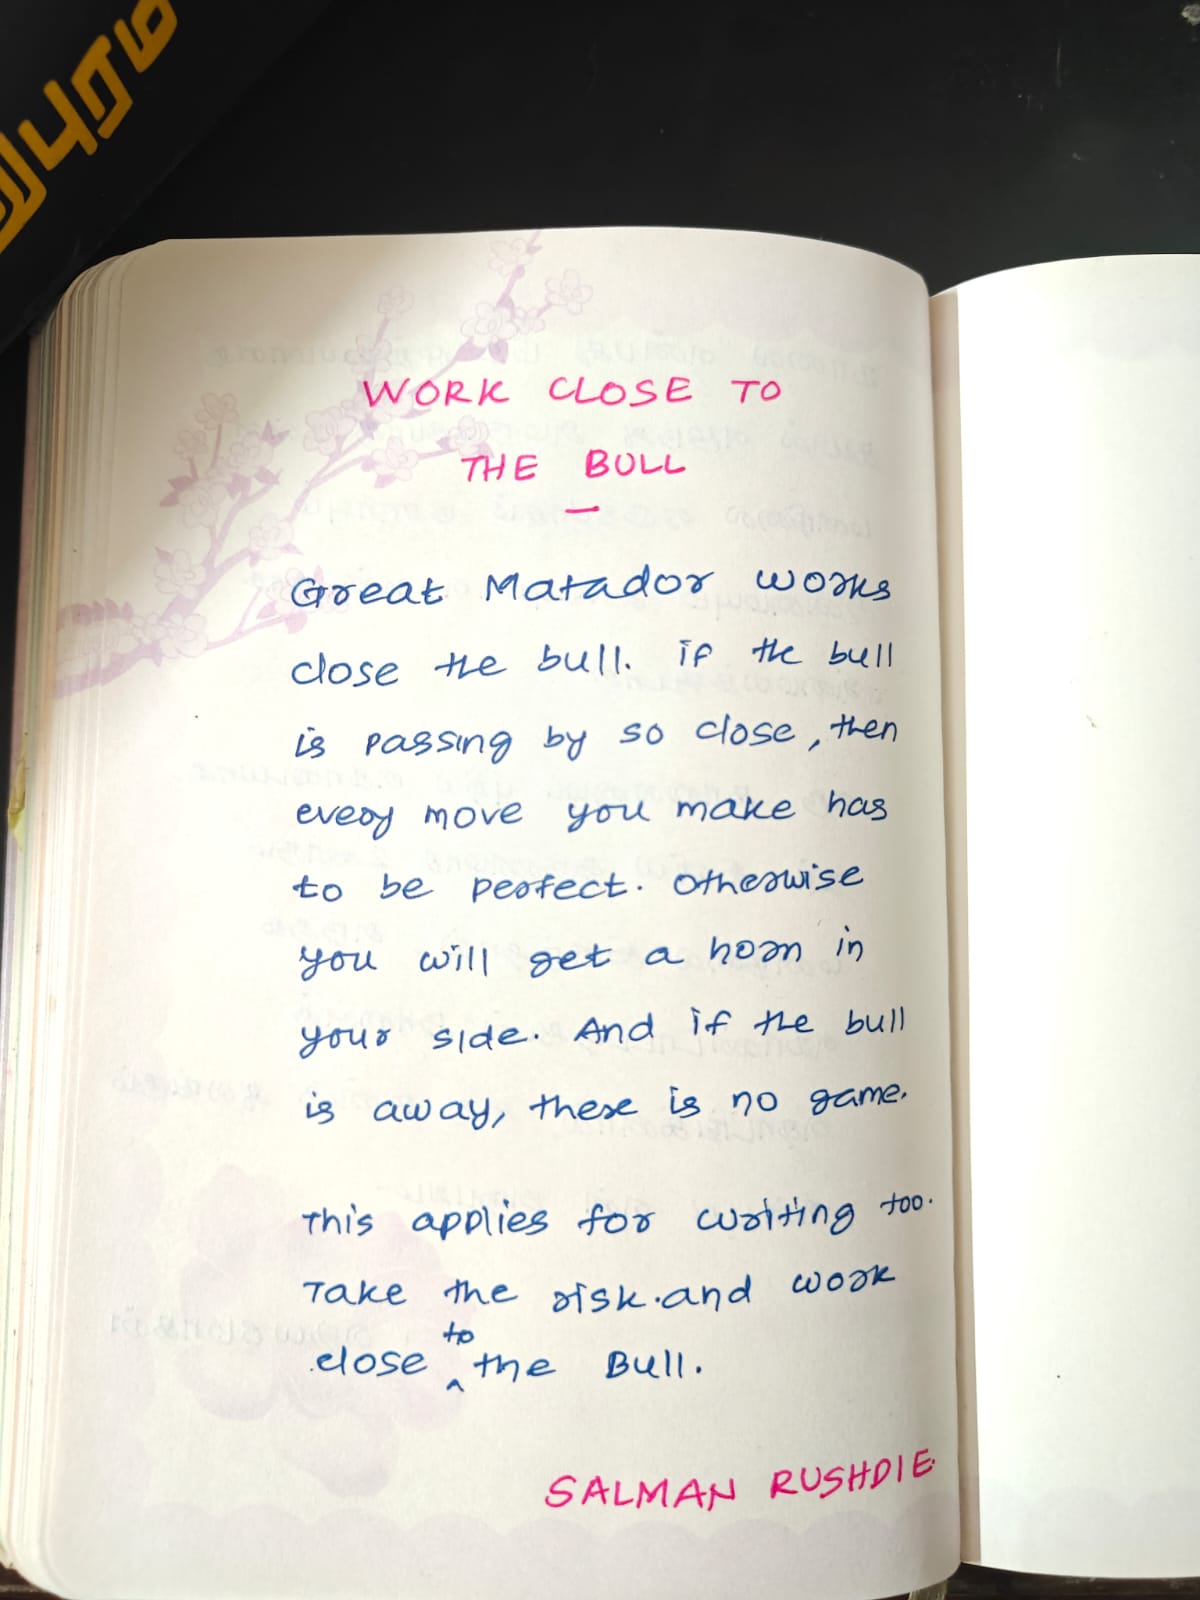 WORK CLOSE TO
THE BULL
Great Matador works
close the bull. if the bull
is passing by so close, then
every move you make has
to be perfect. Otherwise
you will get a horn in
your side. And if the bull
is away, there is no game.
This applies for writing too.
Take the risk. and work
close to the Bull.
SALMAN RUSHDIE.